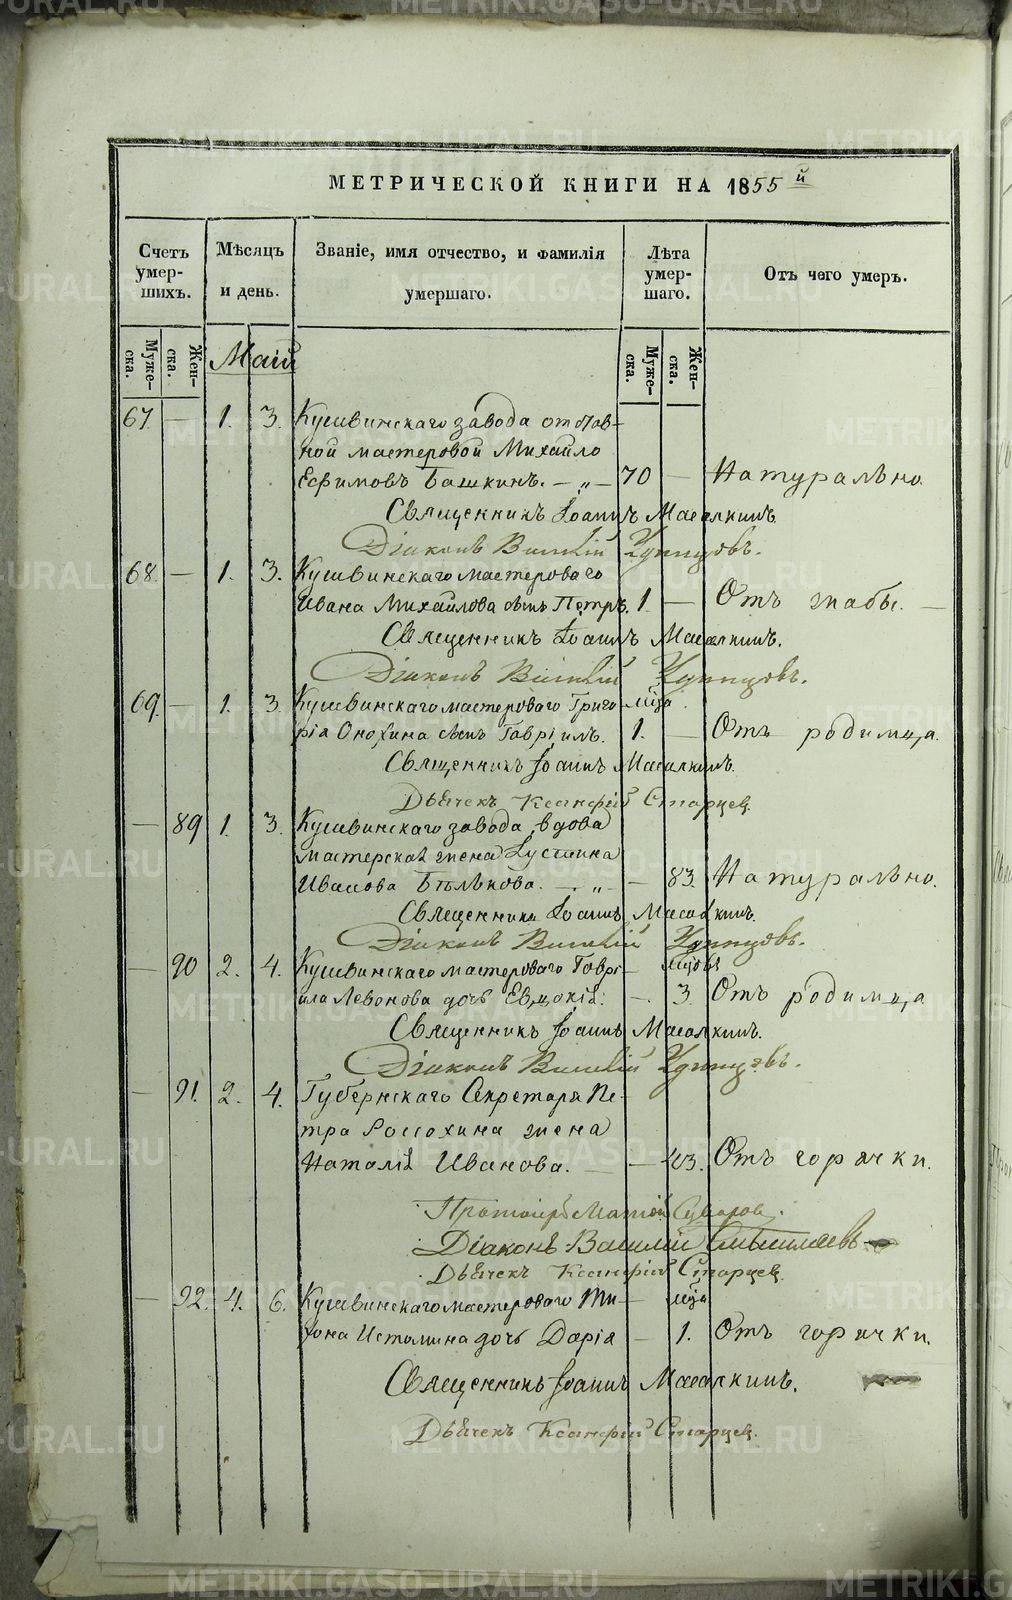 МЕТРИЧЕСКОЙ КНИГИ НА 1855й
Счетъ умер-шихъ.
Мѣсяцъ и день.
Званіе, имя отчество, и фамилія умершаго.
Лѣта умер-шаго.
Отъ чего умеръ.
Муже-ска.
Жен-ска.
Маій
Муже-ска.
Жен-ска.
67 — 1. 3. Кушвинскаго завода отстав-
ной мастеровой Михайло
Ефимовъ Башкинъ. — „ — 70 — Натурально.
Священникъ Іоаннъ Масалкинъ.
Діаконъ Василій
68. — 1. 3. Кушвинскаго мастероваго
Ивана Михайлова сынъ Петръ. 1. — Отъ жабы. —
Священникъ Іоаннъ Масалкинъ.
Діаконъ Василій
69. — 1. 3. Кушвинскаго мастероваго Григо- м҃ца
рія Онохина сынъ Гавріилъ. 1. — Отъ родимца.
Священникъ Іоаннъ Масалкинъ.
Дьячекъ Ксанфій Старцев.
— 89 1. 3. Кушвинскаго завода вдова
мастерская жена Іустина
Иванова Бѣлькова. — „ — — 83. Натурально.
Священникъ Іоаннъ Масалкинъ.
Діаконъ Василій
— 90 2. 4. Кушвинскаго мастероваго Гаврі-
ила Левонова дочь Евдокія. — 3 Отъ родимца
Священникъ Іоаннъ Масалкинъ.
Діаконъ Василій
— 91. 2. 4. Губернскаго Секретаря Пе-
тра Россохина жена
Наталія Иванова. — — 43. Отъ горячки.
Протоіерей
Діаконъ Василій
Дьячекъ Ксанфій Старцев.
— 92. 4. 6. Кушвинскаго мастероваго Ти- м҃ца
хона Истомина дочь Дарія — 1. Отъ горячки.
Священникъ Іоаннъ Масалкинъ.
Дьячекъ Ксанфій Старцев.
METRIKI.GASO-URAL.RU